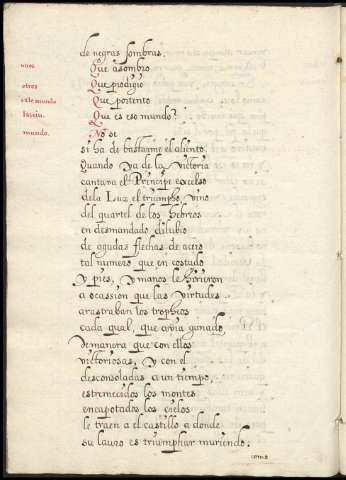 de negras sombras.
unos Que asombro
Que prodigio
otros Que portento
este mundo Que es eso mundo?
mundo. No se
si ha de bastarme el aliento.
Quando ya de la victoria
cantara el Principe excelso
dela Luz el triumpho, vino
del quartel de los Hebreos
en desmandado dilubio
de agudas flechas de acero
tal numero que en costado
y pies, y manos le hirieron
a ocassion que las virtudes
arastraban los tropheos
cada qual, que avia ganado,
de manera que con ellos
victoriosas, y con el
desconsoladas a un tiempo,
estremecidos los montes
encapotados los cielos
le traen a el castillo a donde
su lauro es triumphar muriendo.
como